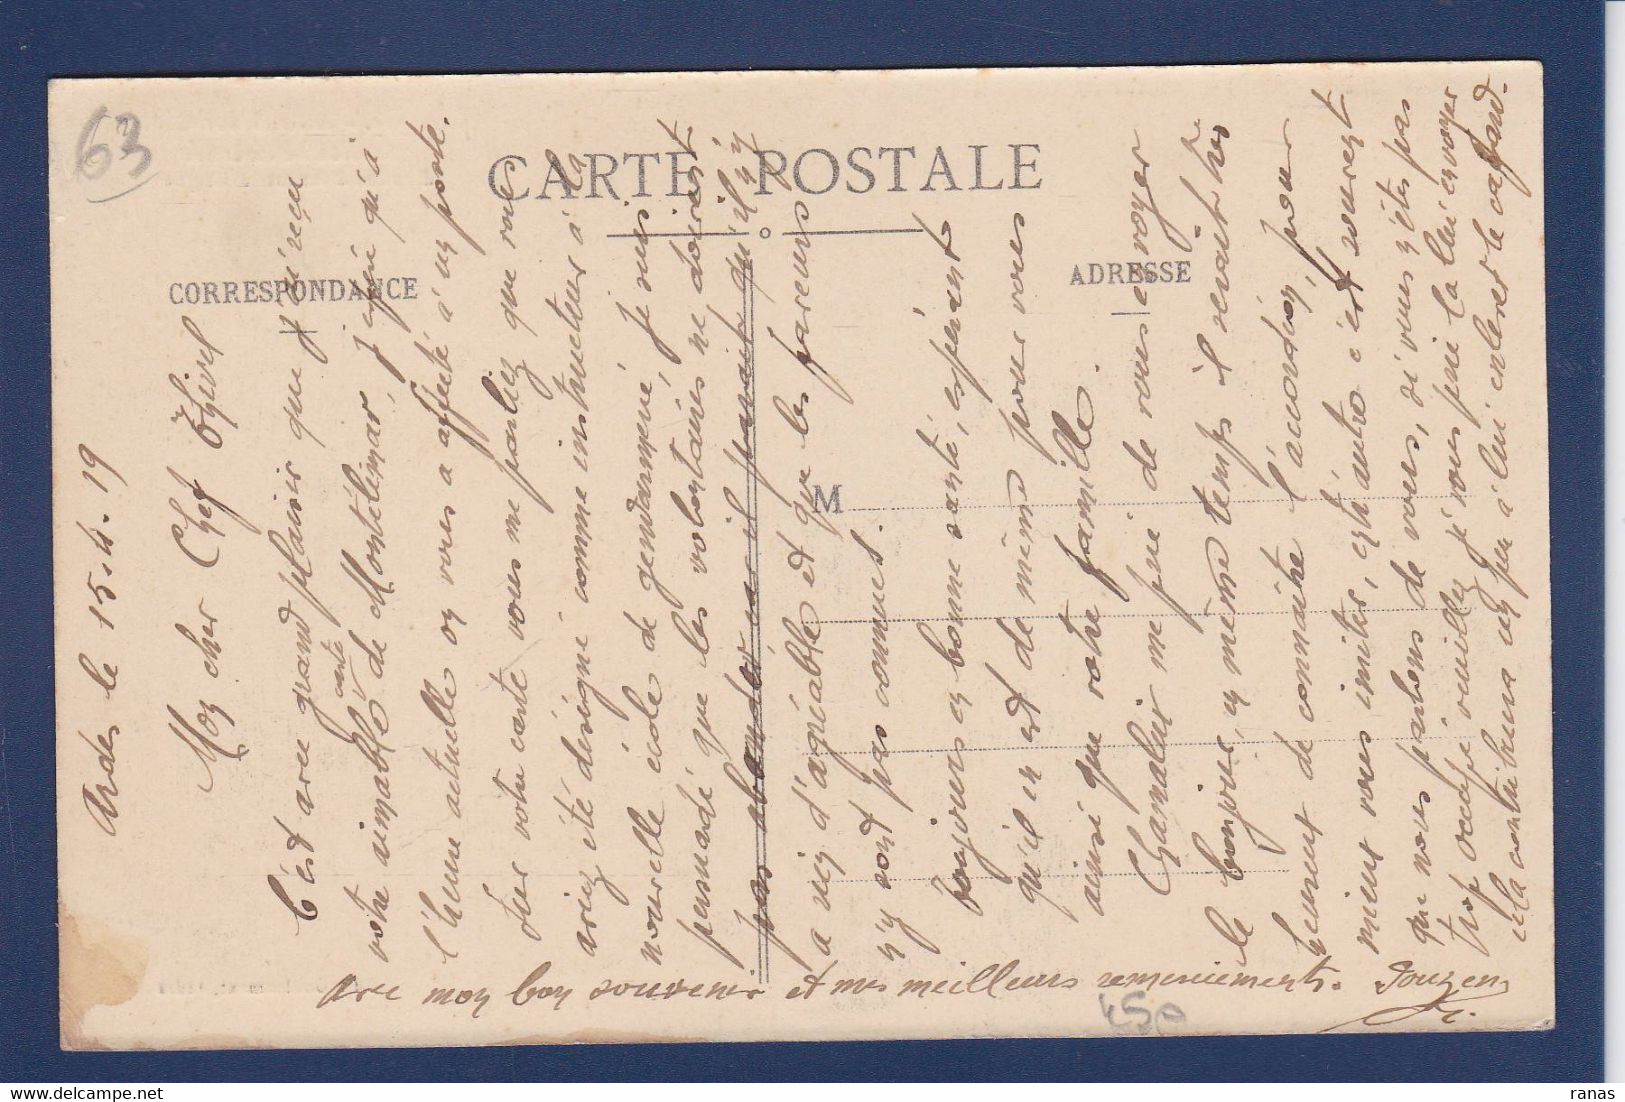 63
CARTE POSTALE
CORRESPONDANCE
ADRESSE
M
Ardes le 15.4.19
Mon cher Chef
C'est avec grand plaisir que j'ai reçu
votre aimable carte de Montélimar, j'espère qu'à
l'heure actuelle on vous a affecté à un poste.
Sur votre carte vous me parliez que vous
aviez été désigné comme instructeur à la
nouvelle école de gendarmerie, je suis
persuadé que les volontaires ne doivent
pas abonder car il parait qu'il n'y
a rien d'agréable et que les faveurs
n'y sont pas connues.
Toujours en bonne santé, espérant
qu'il en est de même pour vous
ainsi que votre famille.
Chamalier me prie de vous envoyer
le bonjour, en même temps il serait très
heureux de connaître l'accordéon, pour
mieux vous imiter, entr'autre c'est souvent
que nous parlons de vous, si vous n'êtes pas
trop occupé veuillez je vous prie la lui envoyer
cela contribuera un peu à lui enlever le cafard.
Avec mon bon souvenir et mes meilleurs remerciements.
450
ranas